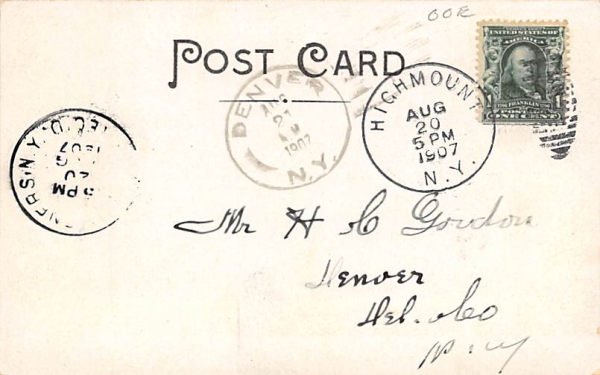 OOR
POST CARD
UNITED STATES OF
AMERICA
1 FRANKLIN 1
POSTAGE
ONE CENT
DENVER
AUG
21
AM
1907
N.Y.
HIGHMOUNT
AUG
20
5 PM
1907
N.Y.
N.Y.
REC'D.
5 PM
20
1907
Mr H C Gordon
Denver
Del. Co
N. Y